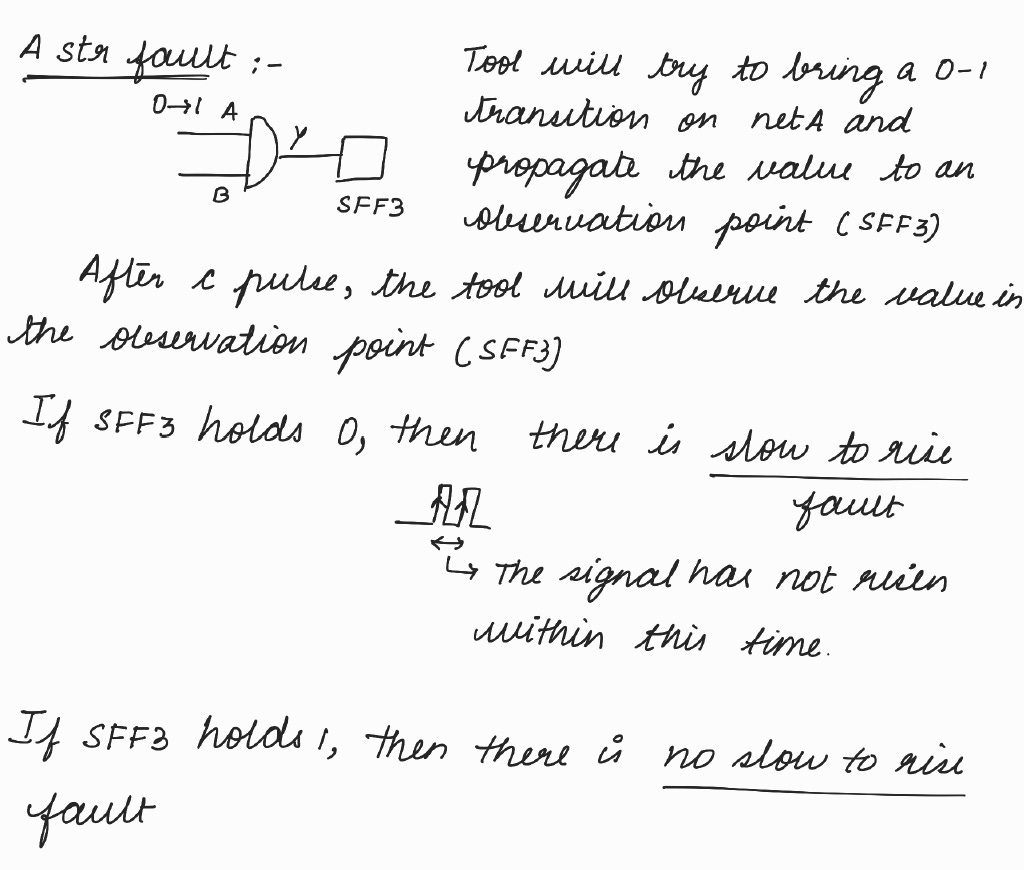 A str fault :-
Tool will try to bring a 0-1
transition on net A and
propagate the value to an
observation point (SFF3)
0→1 A
Y
B
SFF3
After c pulse, the tool will observe the value in
the observation point (SFF3)
If SFF3 holds 0, then there is slow to rise
fault
↳ The signal has not risen
within this time.
If SFF3 holds 1, then there is no slow to rise
fault